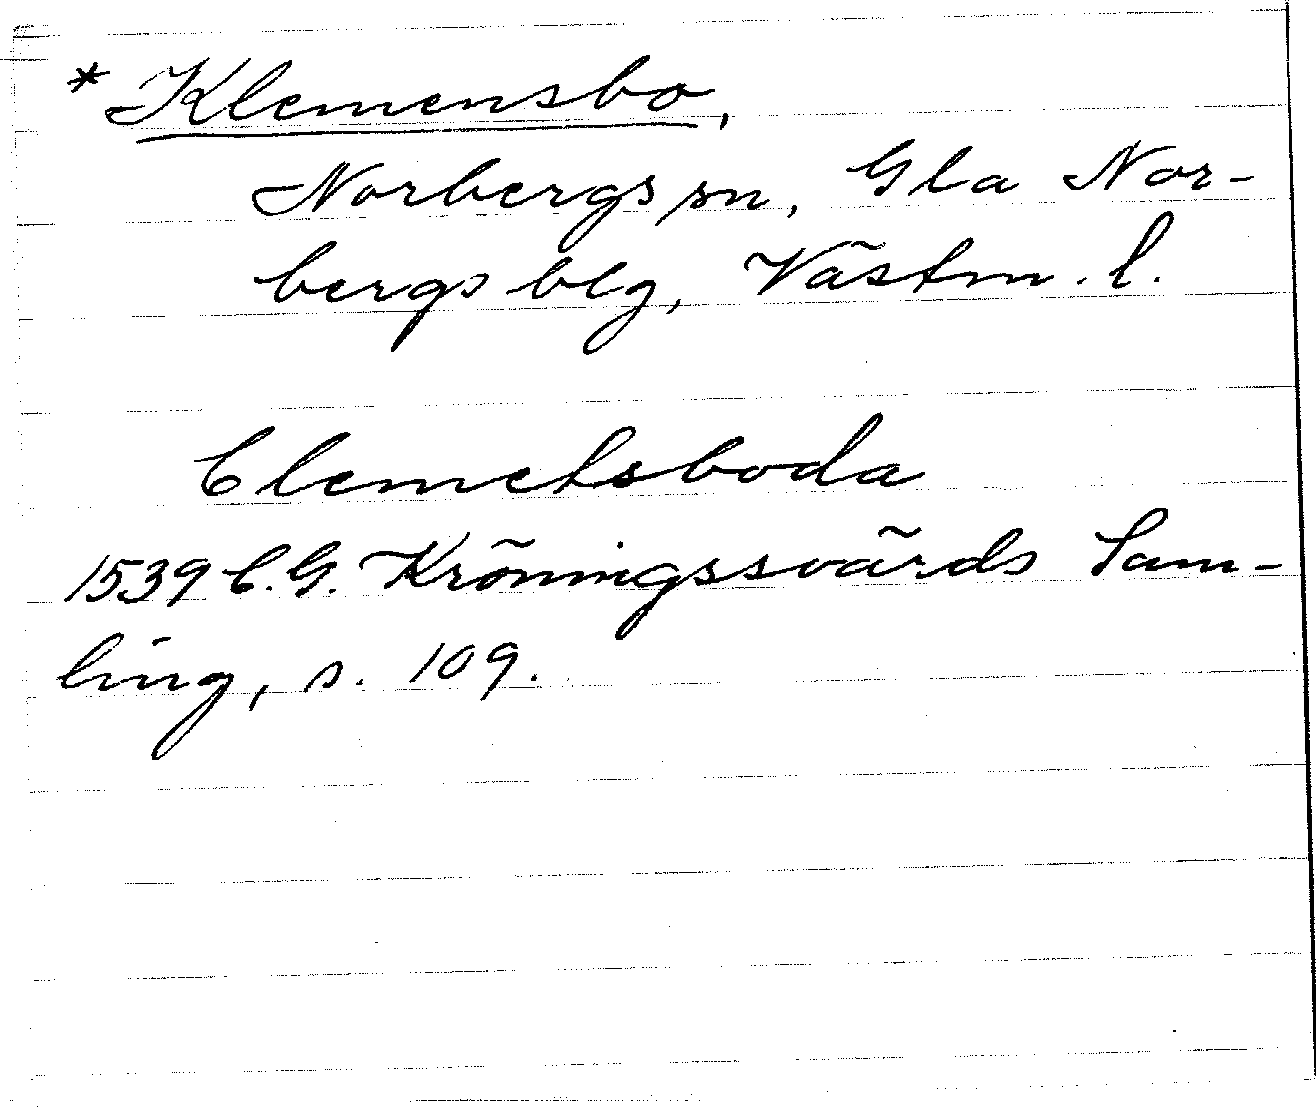 * Klemensbo,
Norbergs sn, Gla Nor-
bergs blg, Västm. l.
Clemetsboda
1539 C.G. Kröningssvärds Sam-
ling, s. 109.